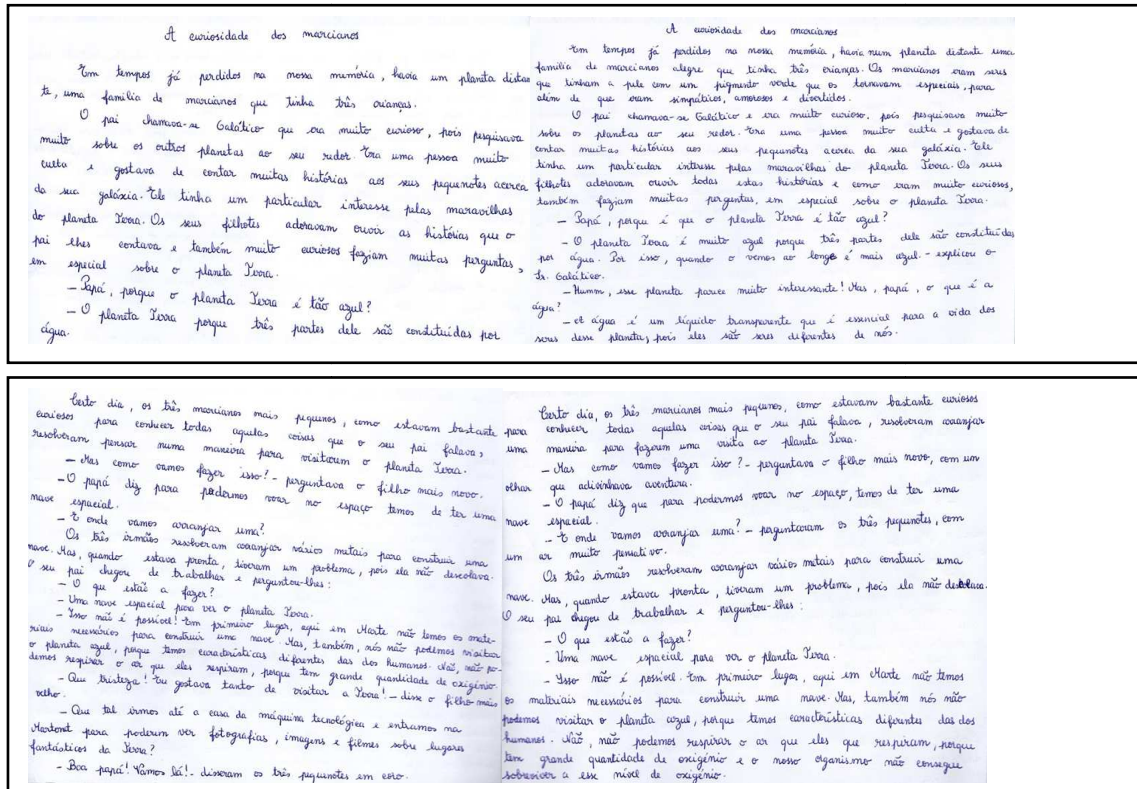 A curiosidade dos marcianos
Em tempos já perdidos na nossa memória, havia um planeta distan
te, uma família de marcianos que tinha três crianças.
O pai chamava-se Galático que era muito curioso, pois pesquisava
muito sobre os outros planetas ao seu redor. Era uma pessoa muito
culta e gostava de contar muitas histórias aos seus pequenotes acerca
da sua galáxia. Ele tinha um particular interesse pelas maravilhas
do planeta Terra. Os seus filhotes adoravam ouvir as histórias que o
pai lhes contava e também muito curiosos faziam muitas perguntas,
em especial sobre o planeta Terra.
- Papá, porque o planeta Terra é tão azul?
- O planeta Terra porque três partes dele são constituídas por
água.
A curiosidade dos marcianos
Em tempos já perdidos na nossa memória, havia num planeta distante uma
família de marcianos alegre que tinha três crianças. Os marcianos eram seres
que tinham a pele com um pigmento verde que os tornavam especiais, para
além de que eram simpáticos, amorosos e divertidos.
O pai chamava-se Galático e era muito curioso, pois pesquisava muito
sobre os planetas ao seu redor. Era uma pessoa muito culta e gostava de
contar muitas histórias aos seus pequenotes acerca da sua galáxia. Ele
tinha um particular interesse pelas maravilhas do planeta Terra. Os seus
filhotes adoravam ouvir todas estas histórias e como eram muito curiosos,
também faziam muitas perguntas, em especial sobre o planeta Terra.
- Papá, porque é que o planeta Terra é tão azul?
- O planeta Terra é muito azul porque três partes dele são constituídas
por água. Por isso, quando o vemos ao longe é mais azul. - explicou o
Sr. Galático.
- Humm, esse planeta parece muito interessante! Mas, papá, o que é a
água?
- A água é um líquido transparente que é essencial para a vida dos
seres desse planeta, pois eles são seres diferentes de nós.
Certo dia, os três marcianos mais pequenos, como estavam bastante
curiosos para conhecer todas aquelas coisas que o seu pai falava,
resolveram pensar numa maneira para visitarem o planeta Terra.
- Mas como vamos fazer isso? - perguntava o filho mais novo.
- O papá diz para podermos voar no espaço temos de ter uma
nave espacial.
- E onde vamos arranjar uma?
Os três irmãos resolveram arranjar vários metais para construir uma
nave. Mas, quando estava pronta, tiveram um problema, pois ela não descolava.
O seu pai chegou de trabalhar e perguntou-lhes:
- O que estão a fazer?
- Uma nave espacial para ver o planeta Terra.
- Isso não é possível! Em primeiro lugar, aqui em Marte não temos os mate-
riais necessários para construir uma nave. Mas, também, nós não podemos visitar
o planeta azul, porque temos características diferentes das dos humanos. Não, não po-
demos respirar o ar que eles respiram, porque tem grande quantidade de oxigénio.
- Que tristeza! Eu gostava tanto de visitar a Terra! - disse o filho mais
velho.
- Que tal irmos até a casa da máquina tecnológica e entramos na
Martenet para poderem ver fotografias, imagens e filmes sobre lugares
fantásticos da Terra?
- Boa papá! Vamos lá! - disseram os três pequenotes em coro.
Certo dia, os três marcianos mais pequenos, como estavam bastante curiosos
para conhecer todas aquelas coisas que o seu pai falava, resolveram arranjar
uma maneira para fazerem uma visita ao planeta Terra.
- Mas como vamos fazer isso? - perguntava o filho mais novo, com um
olhar que adivinhava aventura.
- O papá diz que para podermos voar no espaço, temos de ter uma
nave espacial.
- E onde vamos arranjar uma? - perguntaram os três pequenotes, com
um ar muito pensativo.
Os três irmãos resolveram arranjar vários metais para construir uma
nave. Mas, quando estava pronta, tiveram um problema, pois ela não descolava.
O seu pai chegou de trabalhar e perguntou-lhes:
- O que estão a fazer?
- Uma nave espacial para ver o planeta Terra.
- Isso não é possível. Em primeiro lugar, aqui em Marte não temos
os materiais necessários para construir uma nave. Mas, também nós não
podemos visitar o planeta azul, porque temos características diferentes das dos
humanos. Não, não podemos respirar o ar que eles que respiram, porque
tem grande quantidade de oxigénio e o nosso organismo não consegue
sobreviver a esse nível de oxigénio.